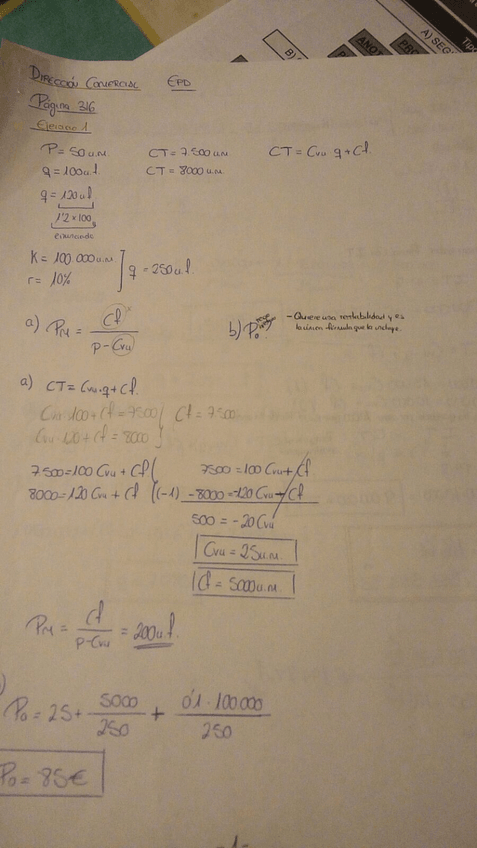 A) SEG
TIP
B)
DIRECCIÓN COMERCIAL EPD
Página 316
Ejercicio 1
P = 50 u.m. CT = 7500 u.m CT = Cvu q + Cf.
q = 100 u.f CT = 8000 u.m.
q = 120 u.f
1'2 × 100
K = 100.000 u.m.
r = 10% ] q = 250 u.f.
a) PM = Cf / P - Cvu b) Po - Quiere una rentabilidad y es
la única fórmula que la incluye.
a) CT = Cvu·q + Cf.
Cvu·100 + Cf = 7500 Cf = 7500
Cvu·120 + Cf = 8000
7500 = 100 Cvu + Cf 7500 = 100 Cvu + Cf
8000 = 120 Cvu + Cf (-1) -8000 = -120 Cvu - Cf
500 = -20 Cvu
Cvu = 25 u.m.
Cf = 5000 u.m.
PM = Cf / P - Cvu = 200 u.f.
)
Po = 25 + 5000 / 250 + 0'1 · 100.000 / 250
Po = 85€
-1-